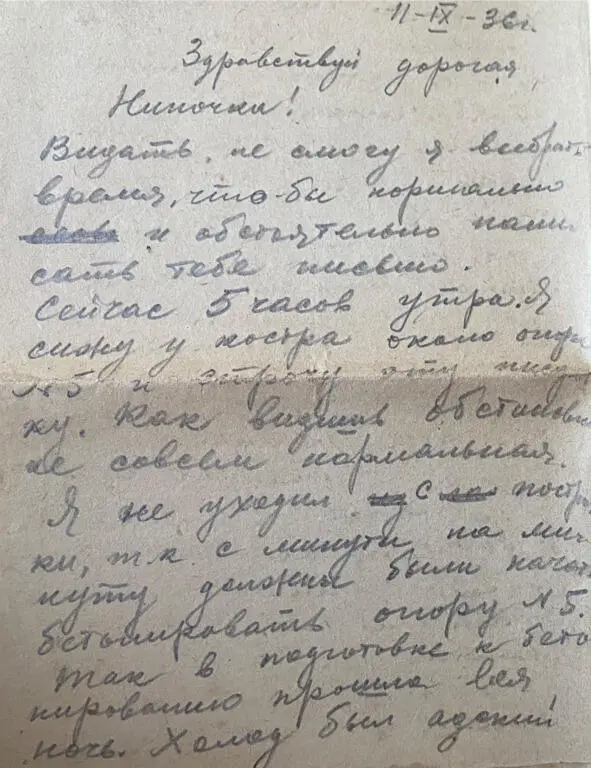 11-IX-36г.
Здравствуй дорогая
Ниночка!
Видать, не смогу я выбрать
время, что-бы нормально
и обстоятельно напи
сать тебе письмо.
Сейчас 5 часов утра. Я
сижу у костра около опоры
№5 и строчу эту пису
ху. Как видишь обстановк
не совсем нормальная.
Я не уходил с построй
ки, т.к с минуты на ми-
нуту должны были начать
бетонировать опору №5.
Так в подготовке к бето
нированию прошла вся
ночь. Холод был адский